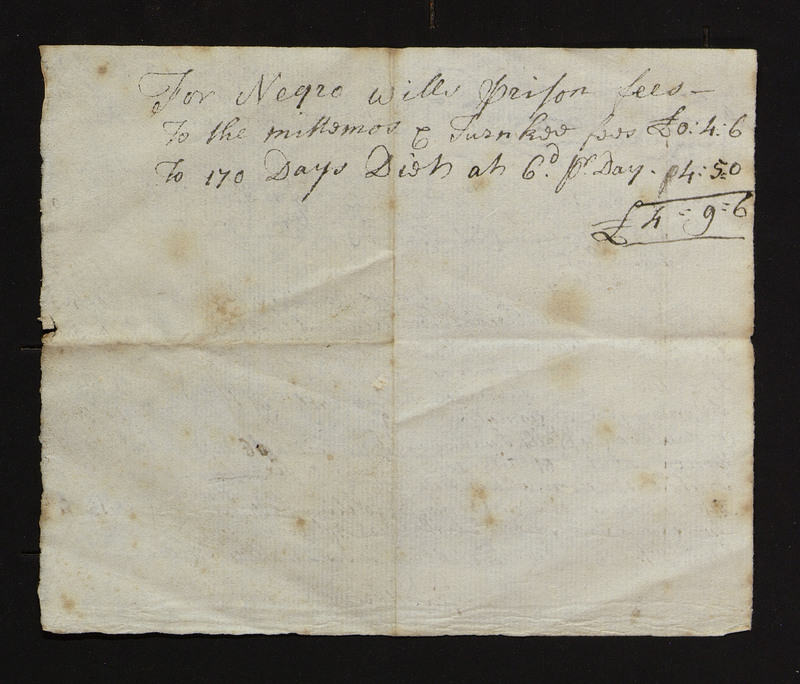 For Negro wills prison fees—
To the mittemos & Turnkee fees £0:4:6
To 170 Days Diet at 6d pr Day. 4:5:0
£4=9=6